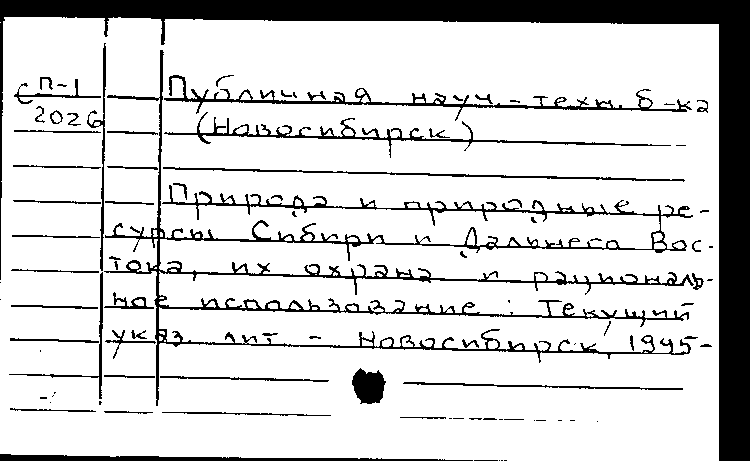 С П-1 Публичная науч.-техн. б-ка
2026 (Новосибирск)
Природа и природные ре-
сурсы Сибири и Дальнего Вос-
тока, их охрана и рациональ-
ное использование: Текущий
указ. лит - Новосибирск, 1945-